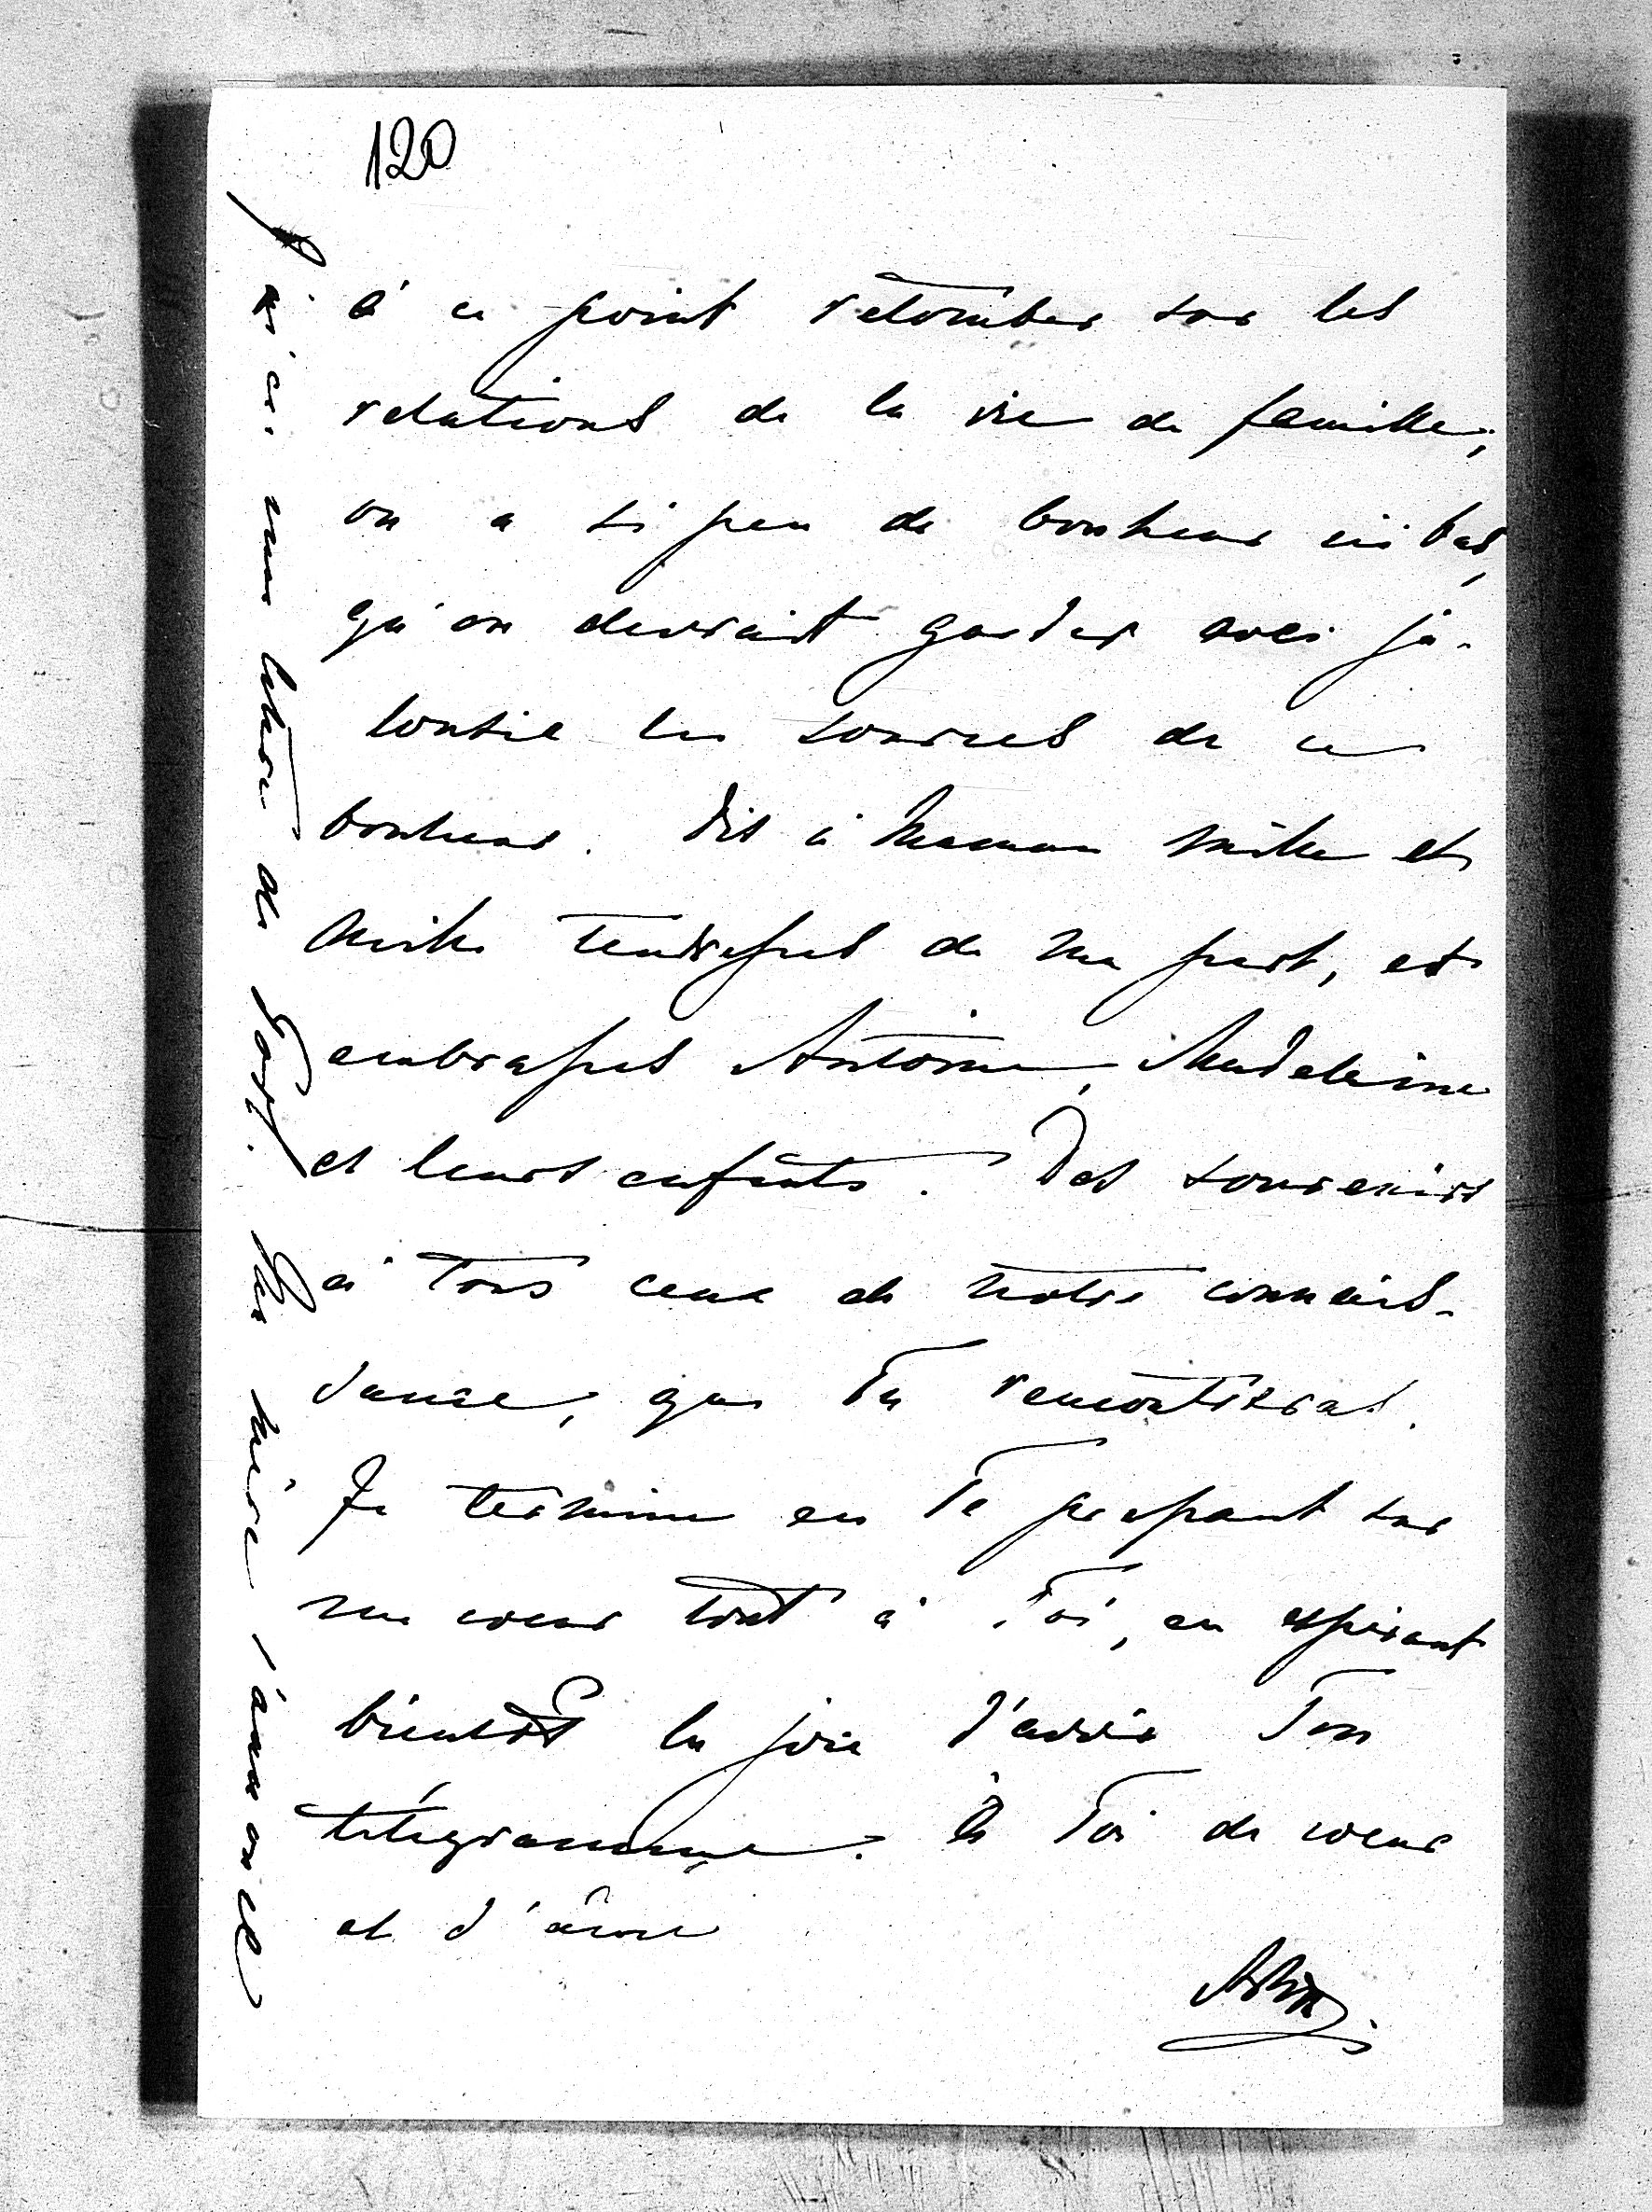 120
à ce point retomber sur les
relations de la vie de famille,
on a si peu de bonheur ici bas,
qu'on devrait garder avec ja-
lousie les sources de ce
bonheur. Dis à Maman mille et
mille tendresses de ma part, et
embrasses Antoine, Madeleine
et leurs enfants. Des souvenirs
à tous ceux de notre connais-
sance, que Tu rencontreras.
Je termine en Te pressant sur
un coeur tout à Toi, en espérant
bientôt la joie d'avoir Ton
télégramme. À Toi de coeur
et d'âme
J'ai eu une lettre de
mère